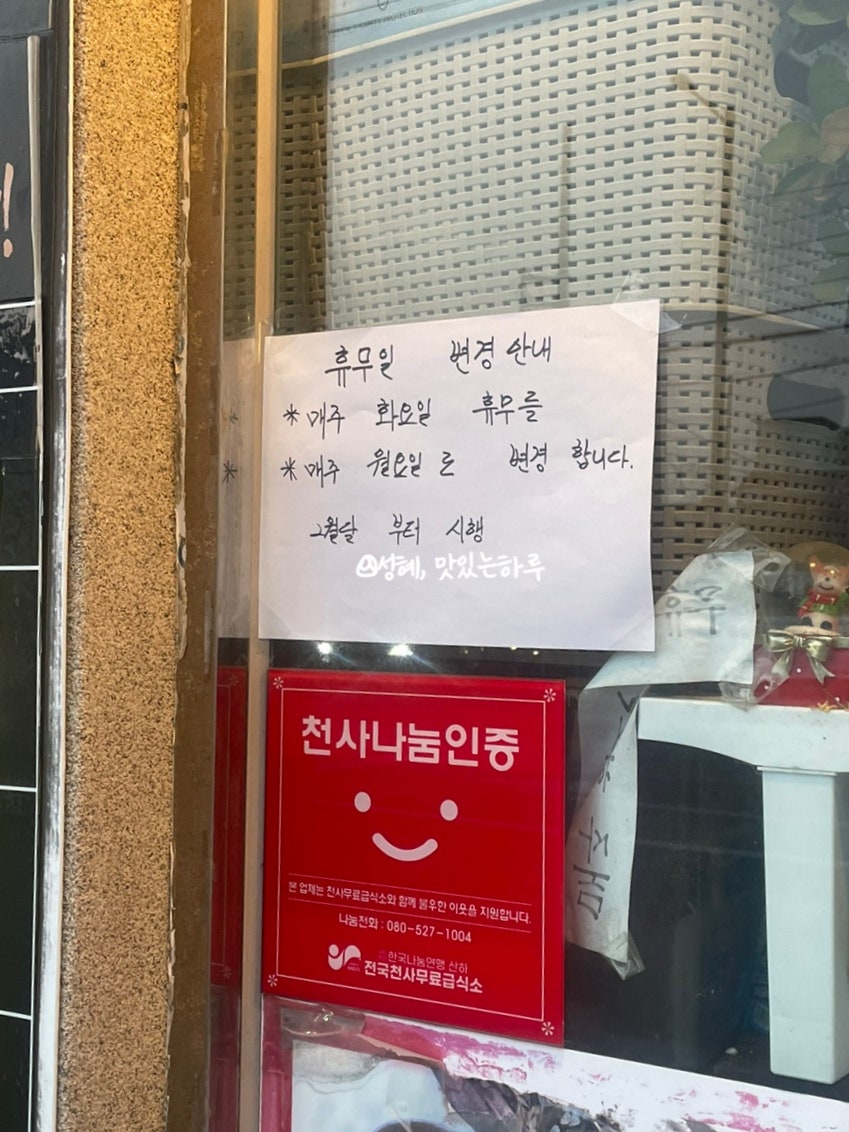 PROTECTION
휴무일 변경 안내
* 매주 화요일 휴무를
* 매주 월요일로 변경 합니다.
2월달 부터 시행
@성혜, 맛있는하루
휴무
천사나눔인증
본 업체는 천사무료급식소와 함께 불우한 이웃을 지원합니다.
나눔전화 : 080-527-1004
한국나눔연맹 산하
전국천사무료급식소